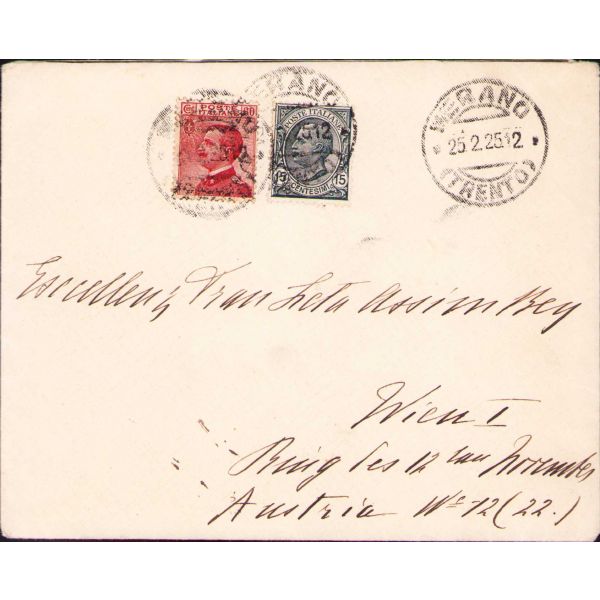 POSTE ITALIANE
60
POSTE ITALIANE
15 CENTESIMI 15
MERANO
25.2.25.12
(TRENTO)
Excellenz Frau Leta Assim Bey
Wien I
Ring des 12ten November
Austria No 12 (22.)